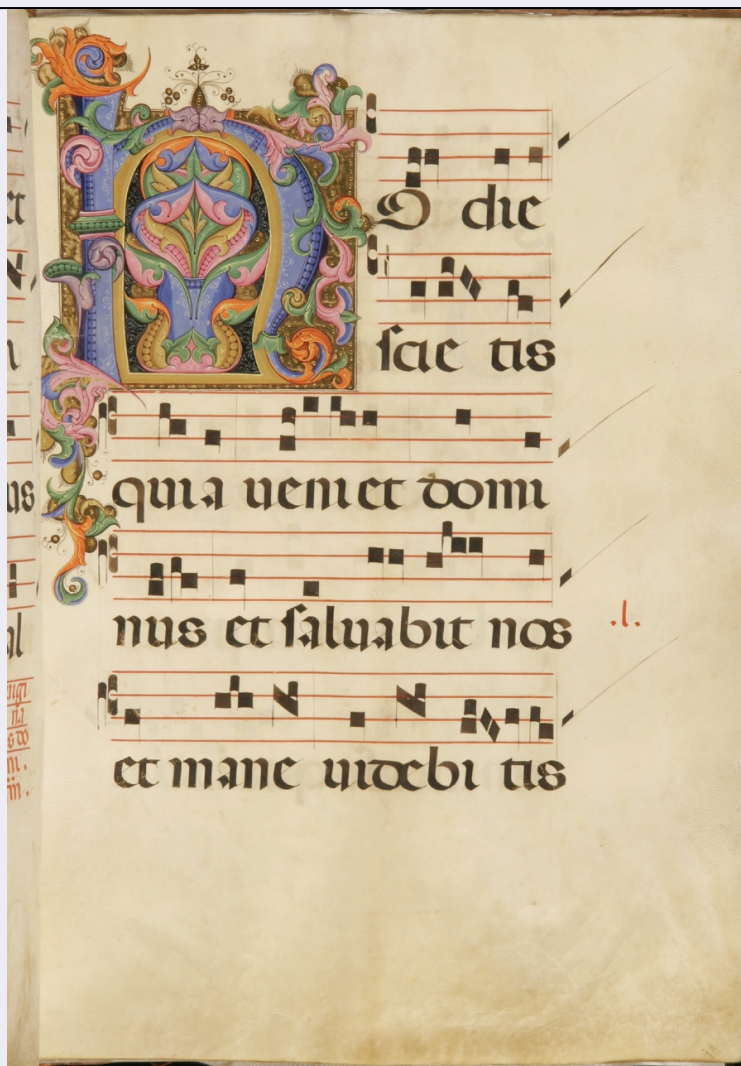 HO die
scie tis
quia ueniet domi
nus et saluabit nos
.l.
et mane uidebi tis